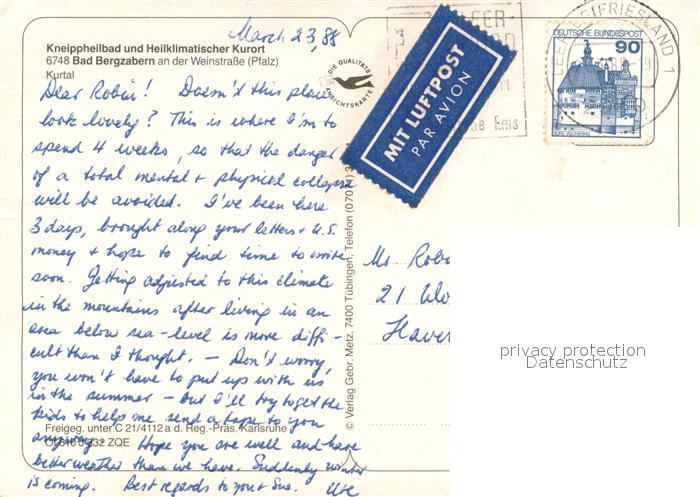 March 23, 88
Kneippheilbad und Heilklimatischer Kurort
6748 Bad Bergzabern an der Weinstraße (Pfalz)
Kurtal
Dear Robin! Doesn't this place
look lovely? This is where I'm to
spend 4 weeks, so that the danger
of a total mental + physical collapse
will be avoided. I've been here
3 days, brought along your letters + U.S.
money + hope to find time to write
soon. Getting adjusted to this climate
in the mountains after living in an
area below sea-level is more diffi-
cult than I thought. – Don't worry,
you won't have to put up with us
in the summer – but I'll try to get the
kids to help me send a tape to you
anyway. Hope you are well and have
better weather than we have. Suddenly winter
is coming. Best regards to you + Sue. Ute
Freigeg. unter C 21/4112 a d. Reg.-Präs. Karlsruhe
ZQE
DIE QUALITÄTS
ANSICHTSKARTE
© Verlag Gebr. Metz, 7400 Tübingen, Telefon (070
MIT LUFTPOST
PAR AVION
Ems
DEUTSCHE BUNDESPOST
90
TFRIESLAND 1
LEER
Ms Robi
21 Wo
Haver
privacy protection
Datenschutz